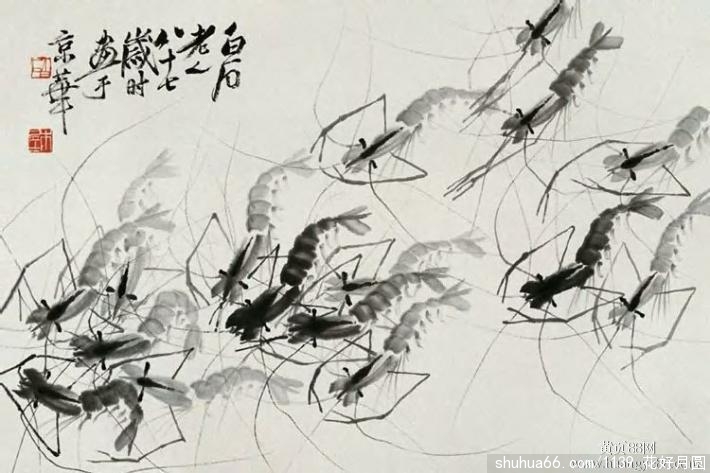 白石
老人
八十七
歲时
畫于
京華
黄页88网
shuhua66.com/1139 花好月圆